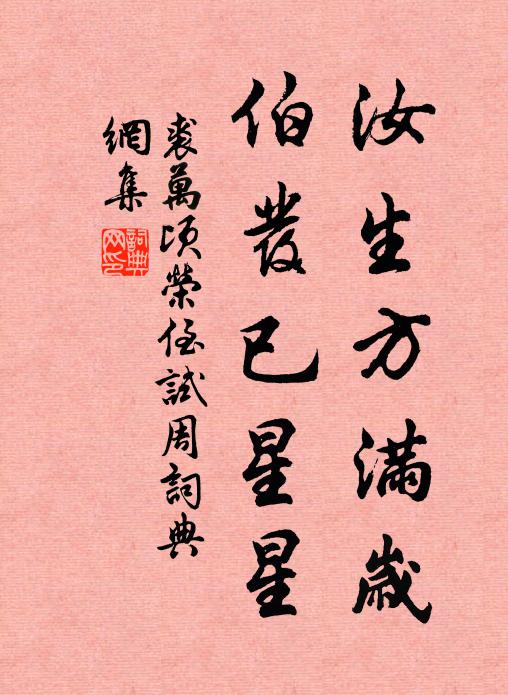 汝生方滿歲
伯發已星星
裘萬頃榮侄試周詞典
網集
詞典
网印